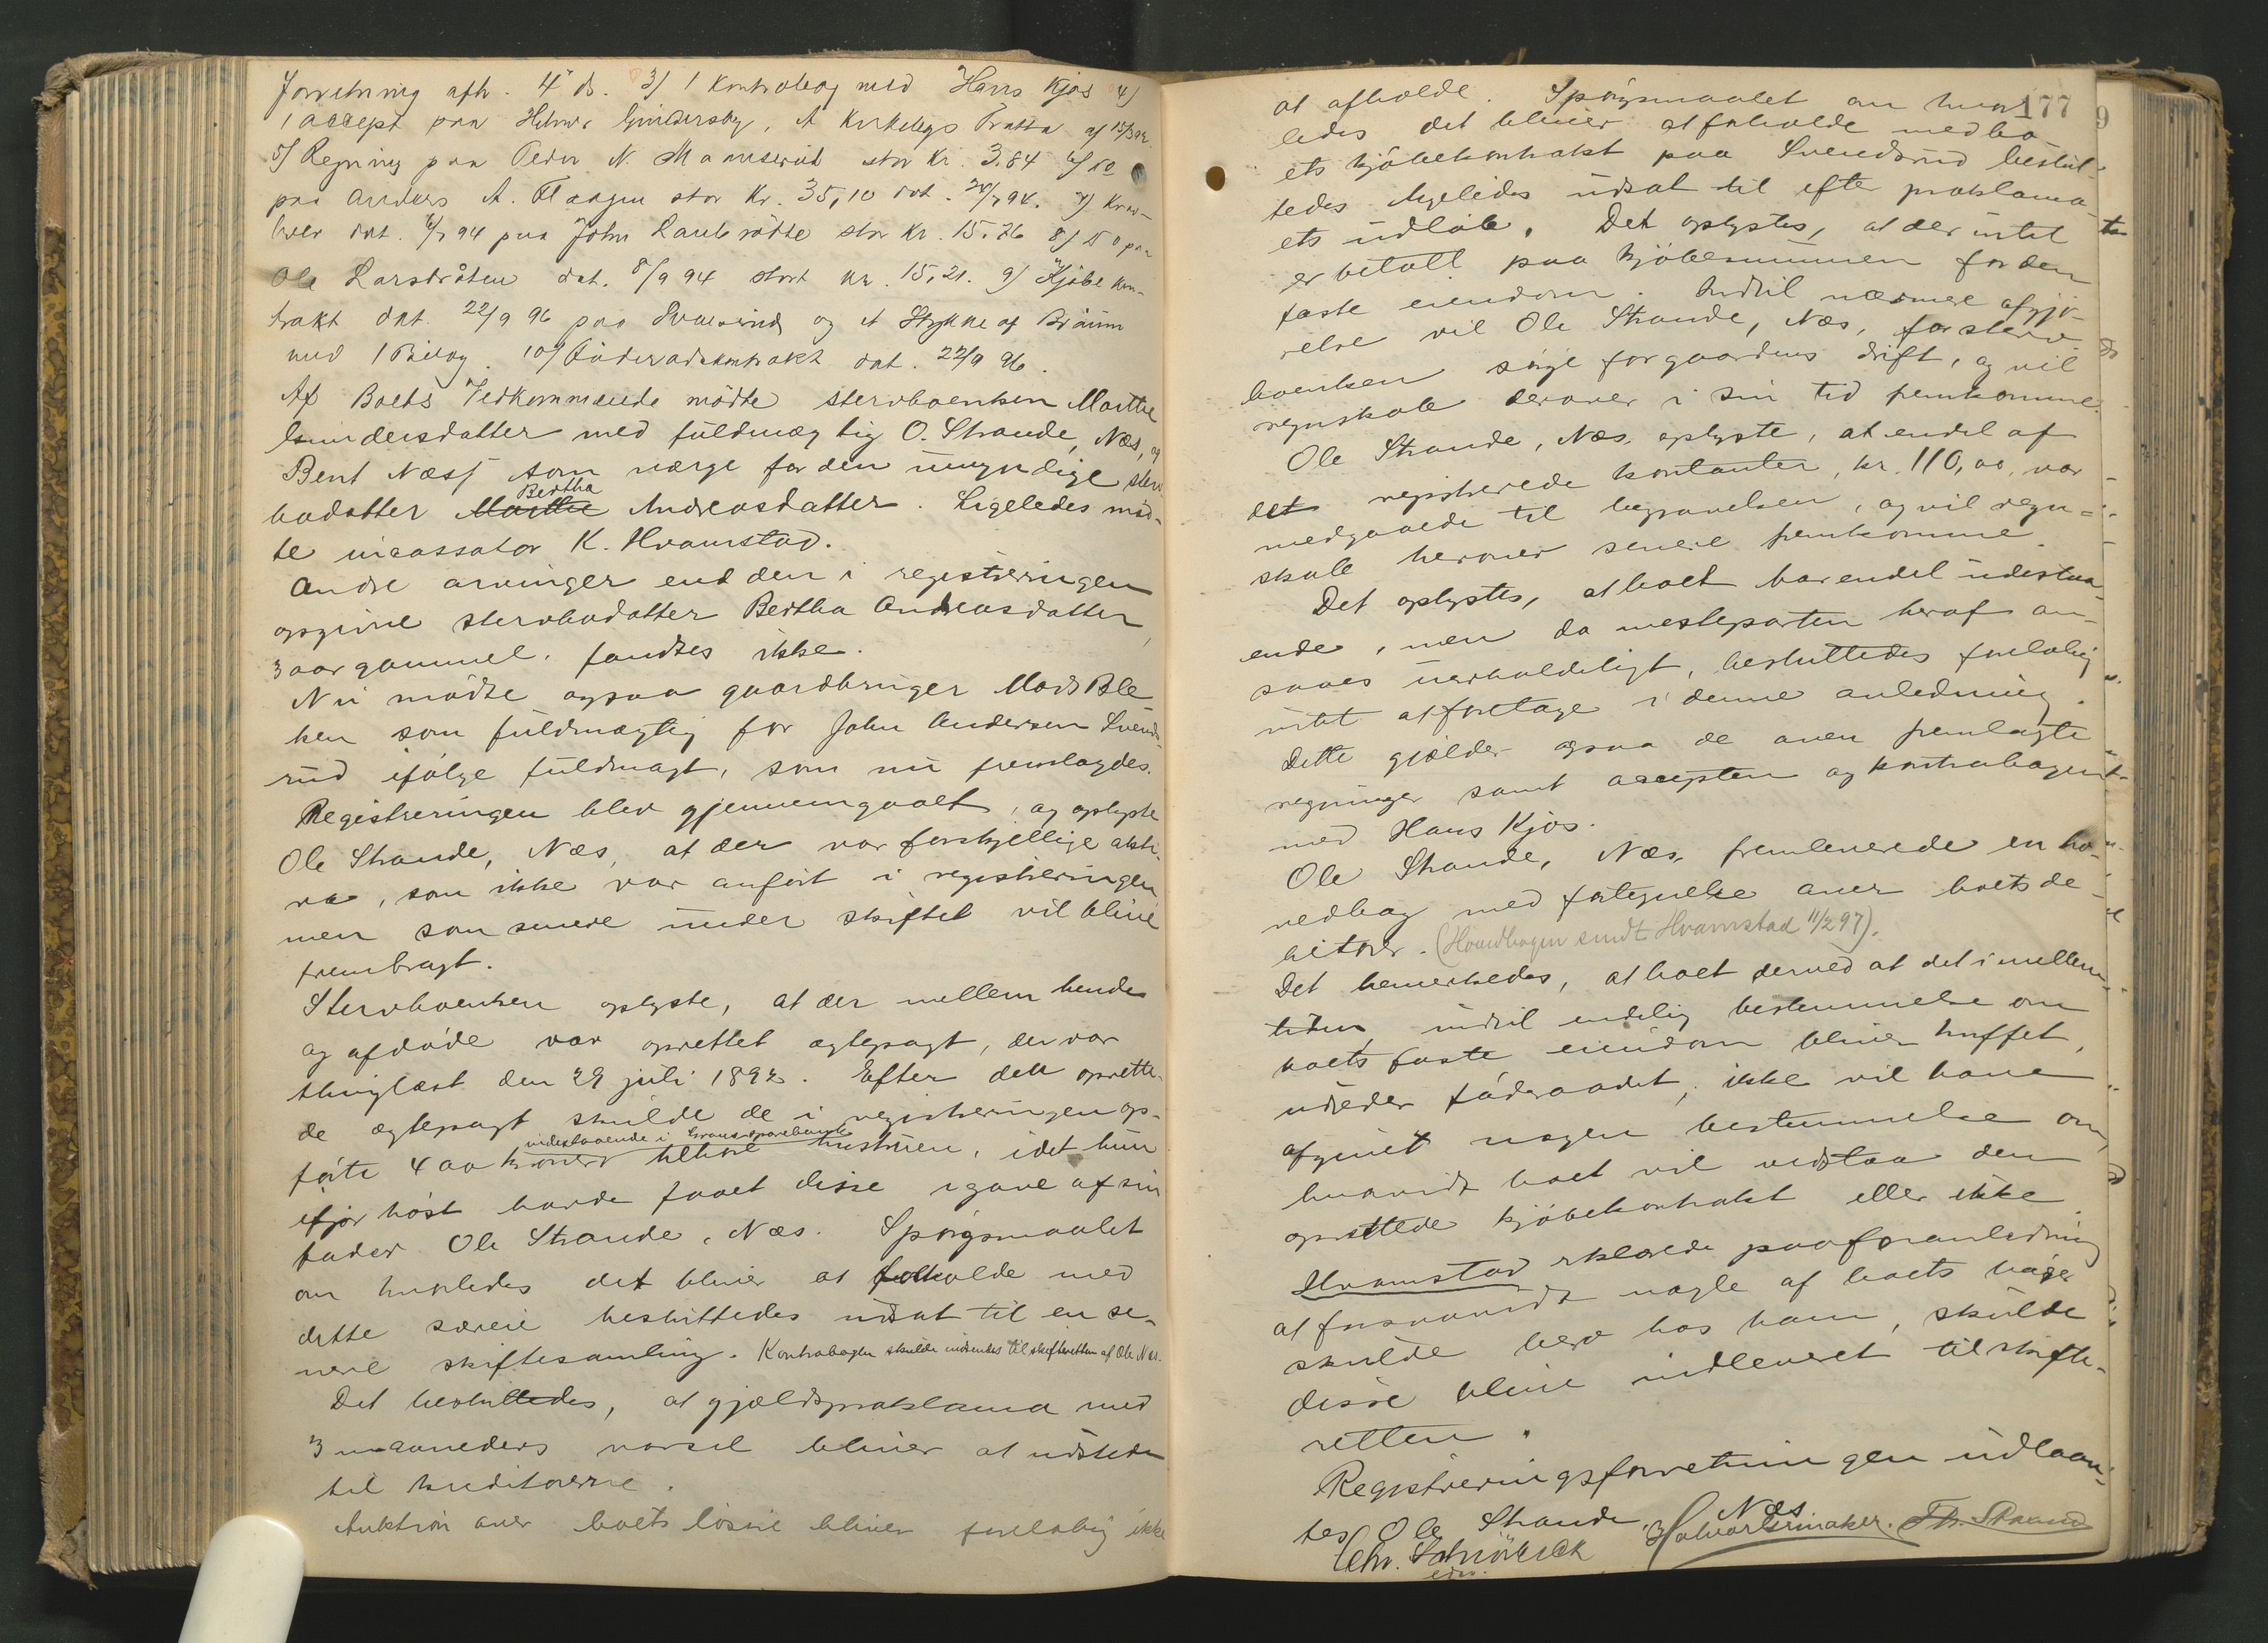 forretning afh. 4 ds. 3) 1 Kontrabog med Hans Kjos 4)
1 accept paa Gundersby, A Kirkebys Tratta af 15/3 94.
5) Regning paa Peder N. Mamserud stor kr. 3.84 6) do
paa Anders A. Flaagen stor Kr. 35,10 dat. 24/7 94. 7) Krav-
brev dat. 6/7 94 paa John Laubråtte stor kr. 15.76 8) Do paa
Ole Larsbråten dat. 8/9 94 stort kr. 15,21. 9) Kjöbekon-
trakt dat. 22/9 96 paa Svensrud og et Stykke af Bråum
med 1 Bilag. 10) Föderaadskontrakt dat. 22/9 96.
Af Boets Vedkommende mödte stervboenken Marthe
Gundersdatter med fuldmægtig O. Strande, Næs, og
Bent Næss som værge for den umyndige sterv-
bodatter Marthe Bertha Andreasdatter. Ligeledes möd-
te incassator K. Hvamstad.
Andre arvinger end den i registreringen
opgivne stervbodatter Bertha Andreasdatter,
3 aar gammel, fandtes ikke.
Nu mödte ogsaa gaardbruger Mads Ble
ken som fuldmægtig for John Andersen Svends-
rud ifölge fuldmagt, som nu fremlagdes.
Registreringen blev gjennemgaaet, og oplyste
Ole Strande, Næs, at der var forskjellige akti-
va, som ikke var anfört i registreringen
men som senere under skiftet vil blive
frembragt.
Stervboenken oplyste, at der mellem hende
og afdöde var oprettet ægtepagt, der var
thinglæst den 29 juli 1892. Efter den oprette-
de ægtepagt skulde de i registreringen op-
förte 400 kroner indestaaende i Grans sparebank tilhöre hustruen, idet hun
ifjor höst havde faaet disse i gave af sin
fader Ole Strande, Næs. Spörgsmaalet
om hvorledes det bliver at forholde med
dette særeie besluttedes udsat til en se-
nere skiftesamling. Kontrabogen skulde indsendes til skifteretten af Ole Næs.
Det besluttedes, at gjældsproklama med
3 maaneders varsel bliver at udstede
til kreditorerne.
Auktion over boets lösöre bliver forelöbig ikke
177
9
at afholde. Spörgsmaalet om hvor-
ledes det bliver at forholde med bo-
ets kjöbekontrakt paa Svendsrud beslut-
tedes ligeledes udsat til efter proklama-
ets udlöb. Det oplystes, at der intet
er betalt paa kjöbesummen for den
faste eiendom. Indtil nærmere afgjö-
relse vil Ole Strande, Næs, for sterv-
boenken sörge for gaardens drift, og vil
regnskab derover i sin tid fremkomme.
Ole Strande, Næs, oplyste, at endel af
det registrerede kontanter, kr. 110,00, var
medgaaede til begravelsen, og vil regn-
skab herover senere fremkomme.
Det oplystes, at boet har endel udestaa-
ende, men da mesteparten heraf an-
saaes uerholdeligt, besluttedes forelöbig
intet at foretage i denne anledning.
Dette gjælder ogsaa de oven fremlagte
regninger samt accepten og kontrabogen
med Hans Kjos.
Ole Strande, Næs, fremleverede en ho-
vedbog med fortegnelse over boets de-
bitorer. (Hovedbogen sendt Hvamstad 11/2 97).
Det bemerkedes, at boet derved at det i mellem-
tiden, indtil endelig bestemmelse om
boets faste eiendom bliver truffet,
udreder föderaadet, ikke vil have
afgivet nogen bestemmelse om,
hvorvidt boet vil vedstaa den
oprettede kjöbekontrakt eller ikke.
Hvamstad erklærede paa foranledning
at forsaavidt nogle af boets böger
skulde bero hos ham, skulde
disse blive indleveret til skifte-
retten.
Registreringsforretningen udlaan-
tes Ole Strande, Næs
Chr. Schiörbeck Halvor Grinaker. Th. Strand
edsv.